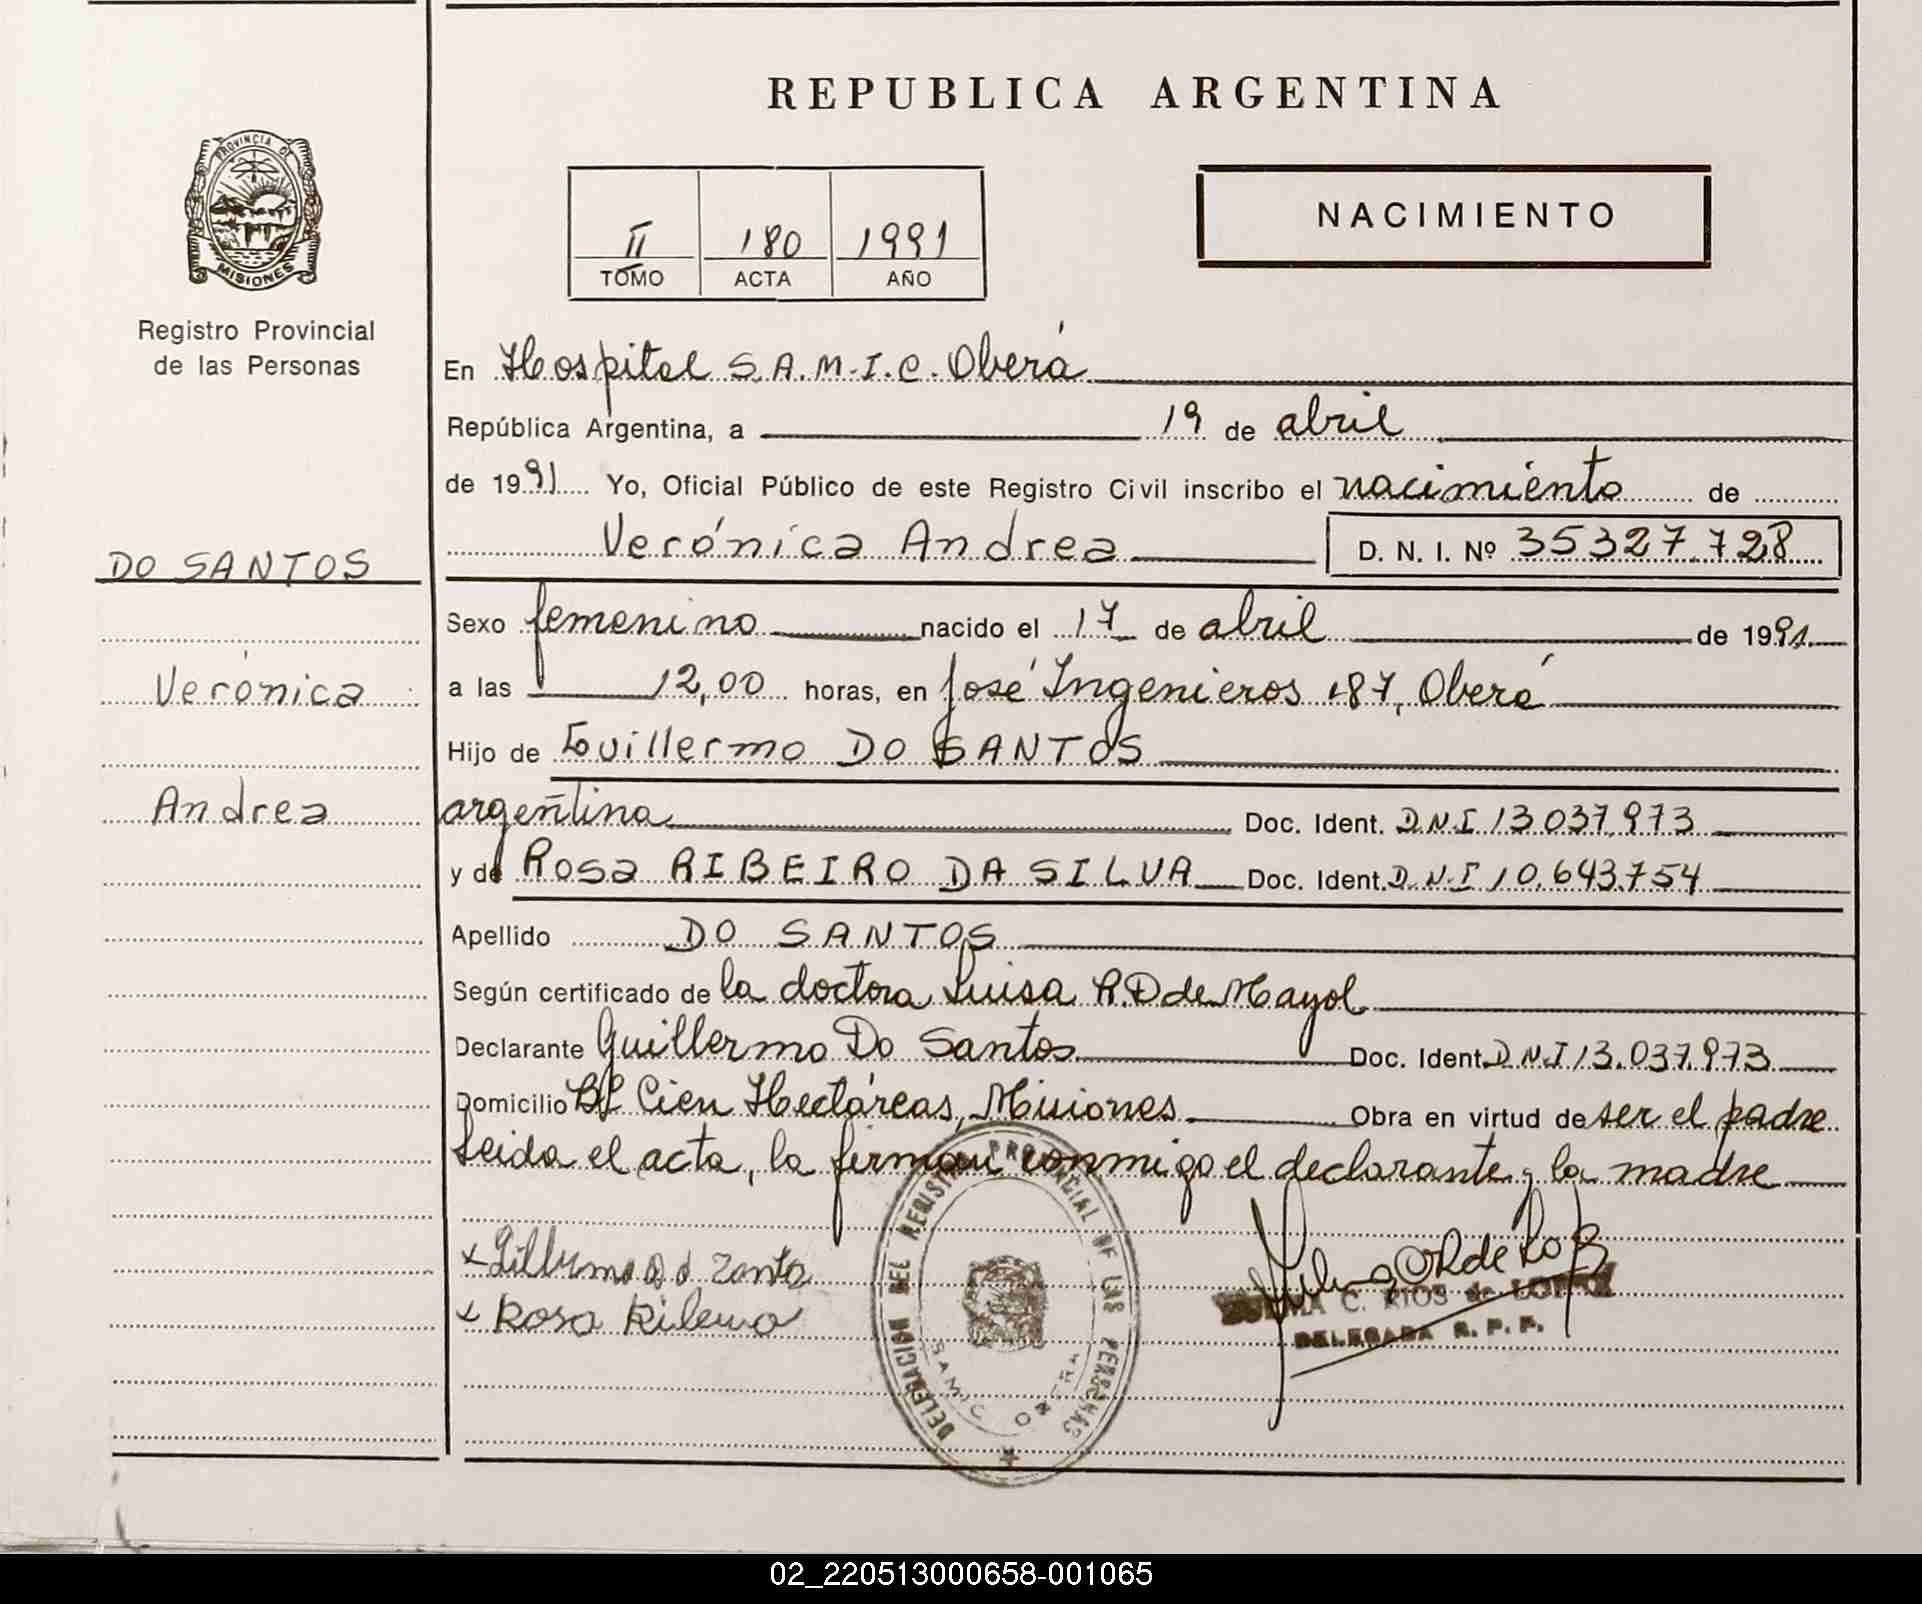 REPUBLICA ARGENTINA
PROVINCIA DE
MISIONES
Registro Provincial
de las Personas
II 180 1991
TOMO ACTA AÑO
NACIMIENTO
En Hospital S.A.M.I.C. Oberá
República Argentina, a 19 de abril
de 1991 Yo, Oficial Público de este Registro Civil inscribo el nacimiento de
Verónica Andrea D. N. I. Nº 35327.728
DO SANTOS
Sexo femenino nacido el 17 de abril de 1991
Verónica
a las 12,00 horas, en José Ingenieros 187, Oberá
Hijo de Guillermo DO SANTOS
Andrea
argentina Doc. Ident. D.N.I 13.037.973
y de Rosa RIBEIRO DA SILVA Doc. Ident. D.N.I 10.643.754
Apellido DO SANTOS
Según certificado de la doctora Luisa R.D de Mayol
Declarante Guillermo Do Santos Doc. Ident. D.N.I 13.037.973
Domicilio Bº Cien Hectáreas, Misiones Obra en virtud de ser el padre
Leida el acta, la firman conmigo el declarante y la madre
DELEGACION DEL REGISTRO PROVINCIAL DE LAS PERSONAS
SAMIC OBERA
Rosa
C. RIOS de LOPEZ
DELEGADA R. P. P.
02_220513000658-001065